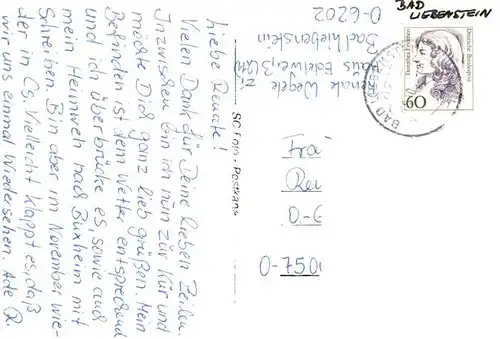 BAD
LIEBENSTEIN
Deutsche Bundespost
Dorothea Erxleben
60
BAD LIEBENSTEIN
Renate Wegele
Haus Edelweiß
Bad Liebenstein
O-6202
liebe Renate!
Vielen Dank für Deine lieben Zeilen.
Inzwischen bin ich nun zur Kur und
möchte Dich ganz lieb grüßen. Mein
Befinden ist dem Wetter entsprechend
und ich überbrücke es, sowie auch
mein Heimweh nach Buxheim mit
Schreiben. Bin aber im November wie-
der in Cs. Vielleicht klappt es, daß
wir uns einmal Wiedersehen. Ade R.
Frau
O-750